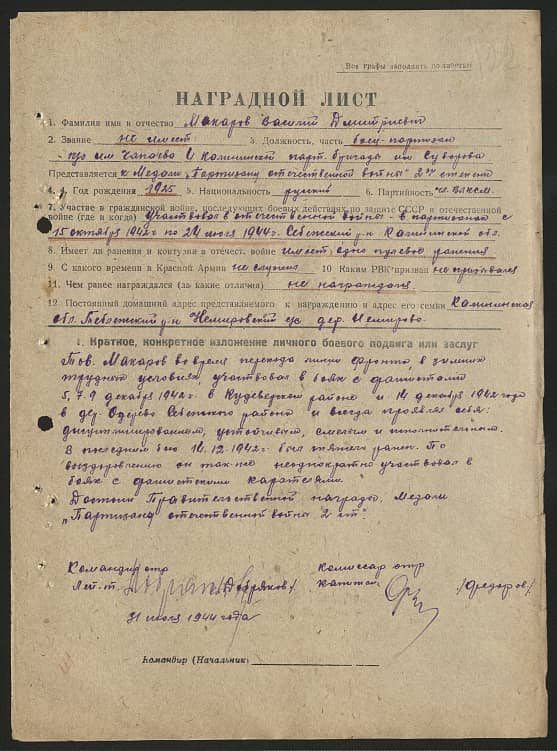 Все графы заполнять полностью
НАГРАДНОЙ ЛИСТ
1. Фамилия имя и отчество Макаров Василий Дмитриевич
2. Звание не имеет 3. Должность, часть боец-партизан
п/о им Чапаева 4 Калининской парт. бригады им Суворова
Представляется к Медали „Партизану отечественной войны" 2ой степени
4. Год рождения 1925 5. Национальность русский 6. Партийность чл. ВЛКСМ.
7. Участие в гражданской войне, последующих боевых действиях по защите СССР и отечественной
войне (где и когда) Участвовал в отечественной войны - в партизанах с
15 октября 1942г по 24 июля 1944г. Себежский р-н Калининской обл.
8. Имеет ли ранения и контузии в отечест. войне имеет одно пулевое ранения
9 С какого времени в Красной Армии не служил 10 Каким РВК призван не призывался
11. Чем ранее награждался (за какие отличия) не награждался
12 Постоянный домашний адрес представляемого к награждению и адрес его семьи Калининская
обл. Себежский р-н Немировский с/с дер. Немирово.
1. Краткое, конкретное изложение личного боевого подвига или заслуг
Тов. Макаров во время перехода линии фронта, в зимних
трудных условиях, участвовал в боях с фашистами
5, 7, 9 декабря 1942г. в Кудеверском районе и 14 декабря 1942 года
в дер. Одерево Себежского района и всегда проявлял себя:
дисциплинированным, устойчивым, смелым и исполнительным.
В последнем бою 14.12.1942г. был тяжело ранен. По
выздоровлению он так-же неоднократно участвовал в
боях с фашистскими карателями.
Достоин Правительственной награды, Медали
„Партизану отечественной войны 2 ст".
Командир отр Комиссар отр
Лей-т. /Добряков/ Капитан /Федоров/
31 июля 1944 года
Командир (Начальник)